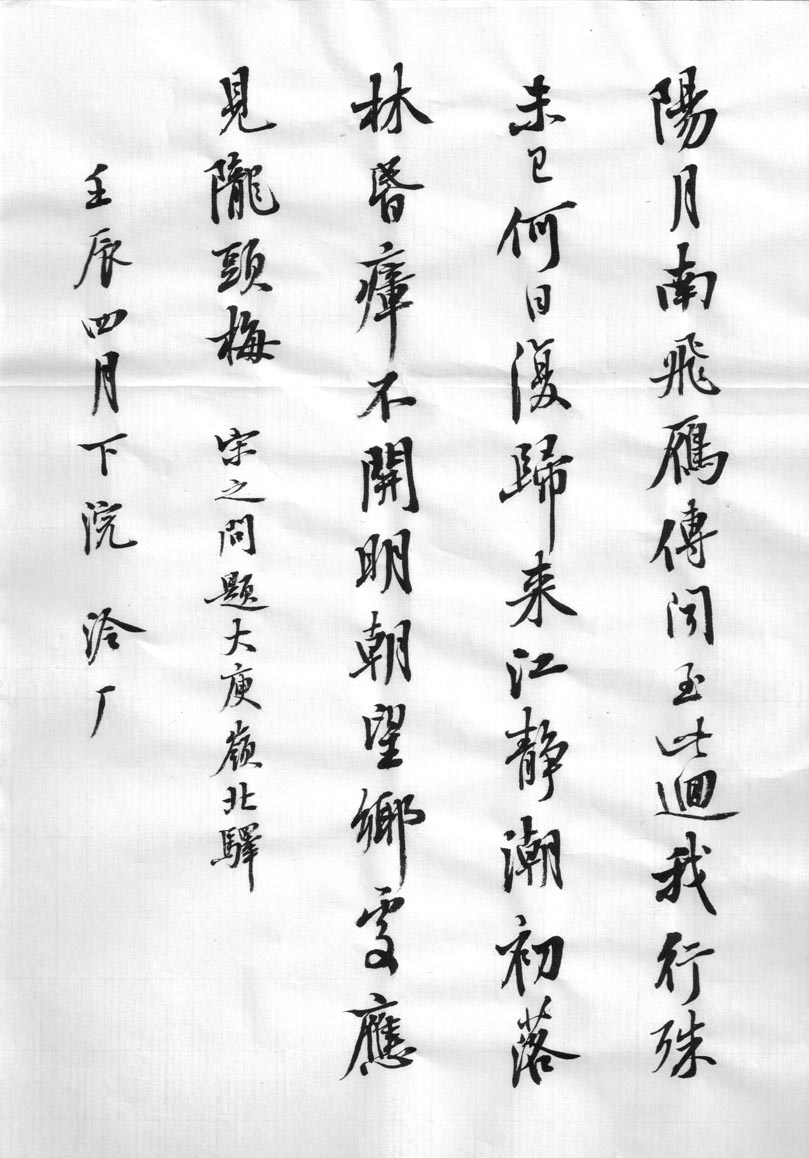 陽月南飛雁傳聞至此迴我行殊
未已何日復歸来江静潮初落
林昏瘴不開明朝望鄉處應
見隴頭梅 宋之問題大庾嶺北驛
壬辰四月下浣 冷厂